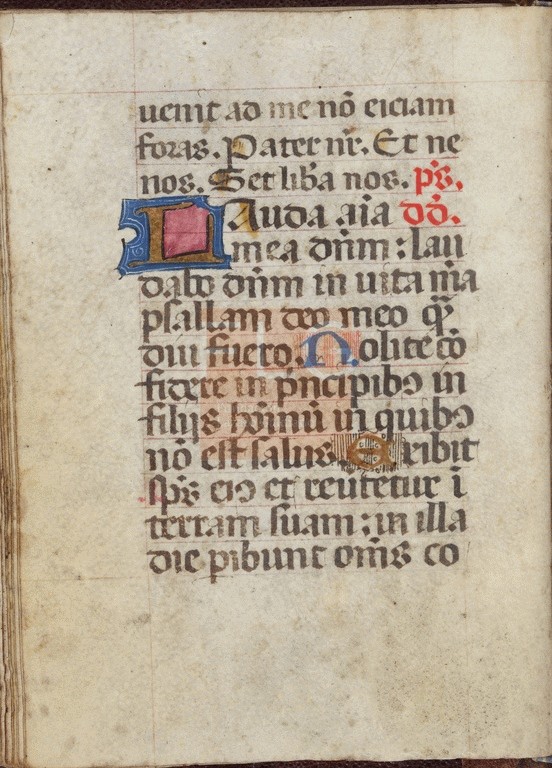 uenit ad me nō eiciam
foras. Pater nr̄. Et ne
nos. Set lib̄a nos. ps̄.
Lauda aīa dō.
mea dn̄m : lau
dabo dn̄m in uita mīa
psallam deo meo qm̄
diu fuero. Nolite cō
fidere in pͥncipibꝰ in
filijs hoīnū in quibꝰ
nō est salus. Exibit
sps̄ eiꝰ et reuᵉtetur ī
terram suam : in illa
die pibunt om̄s co